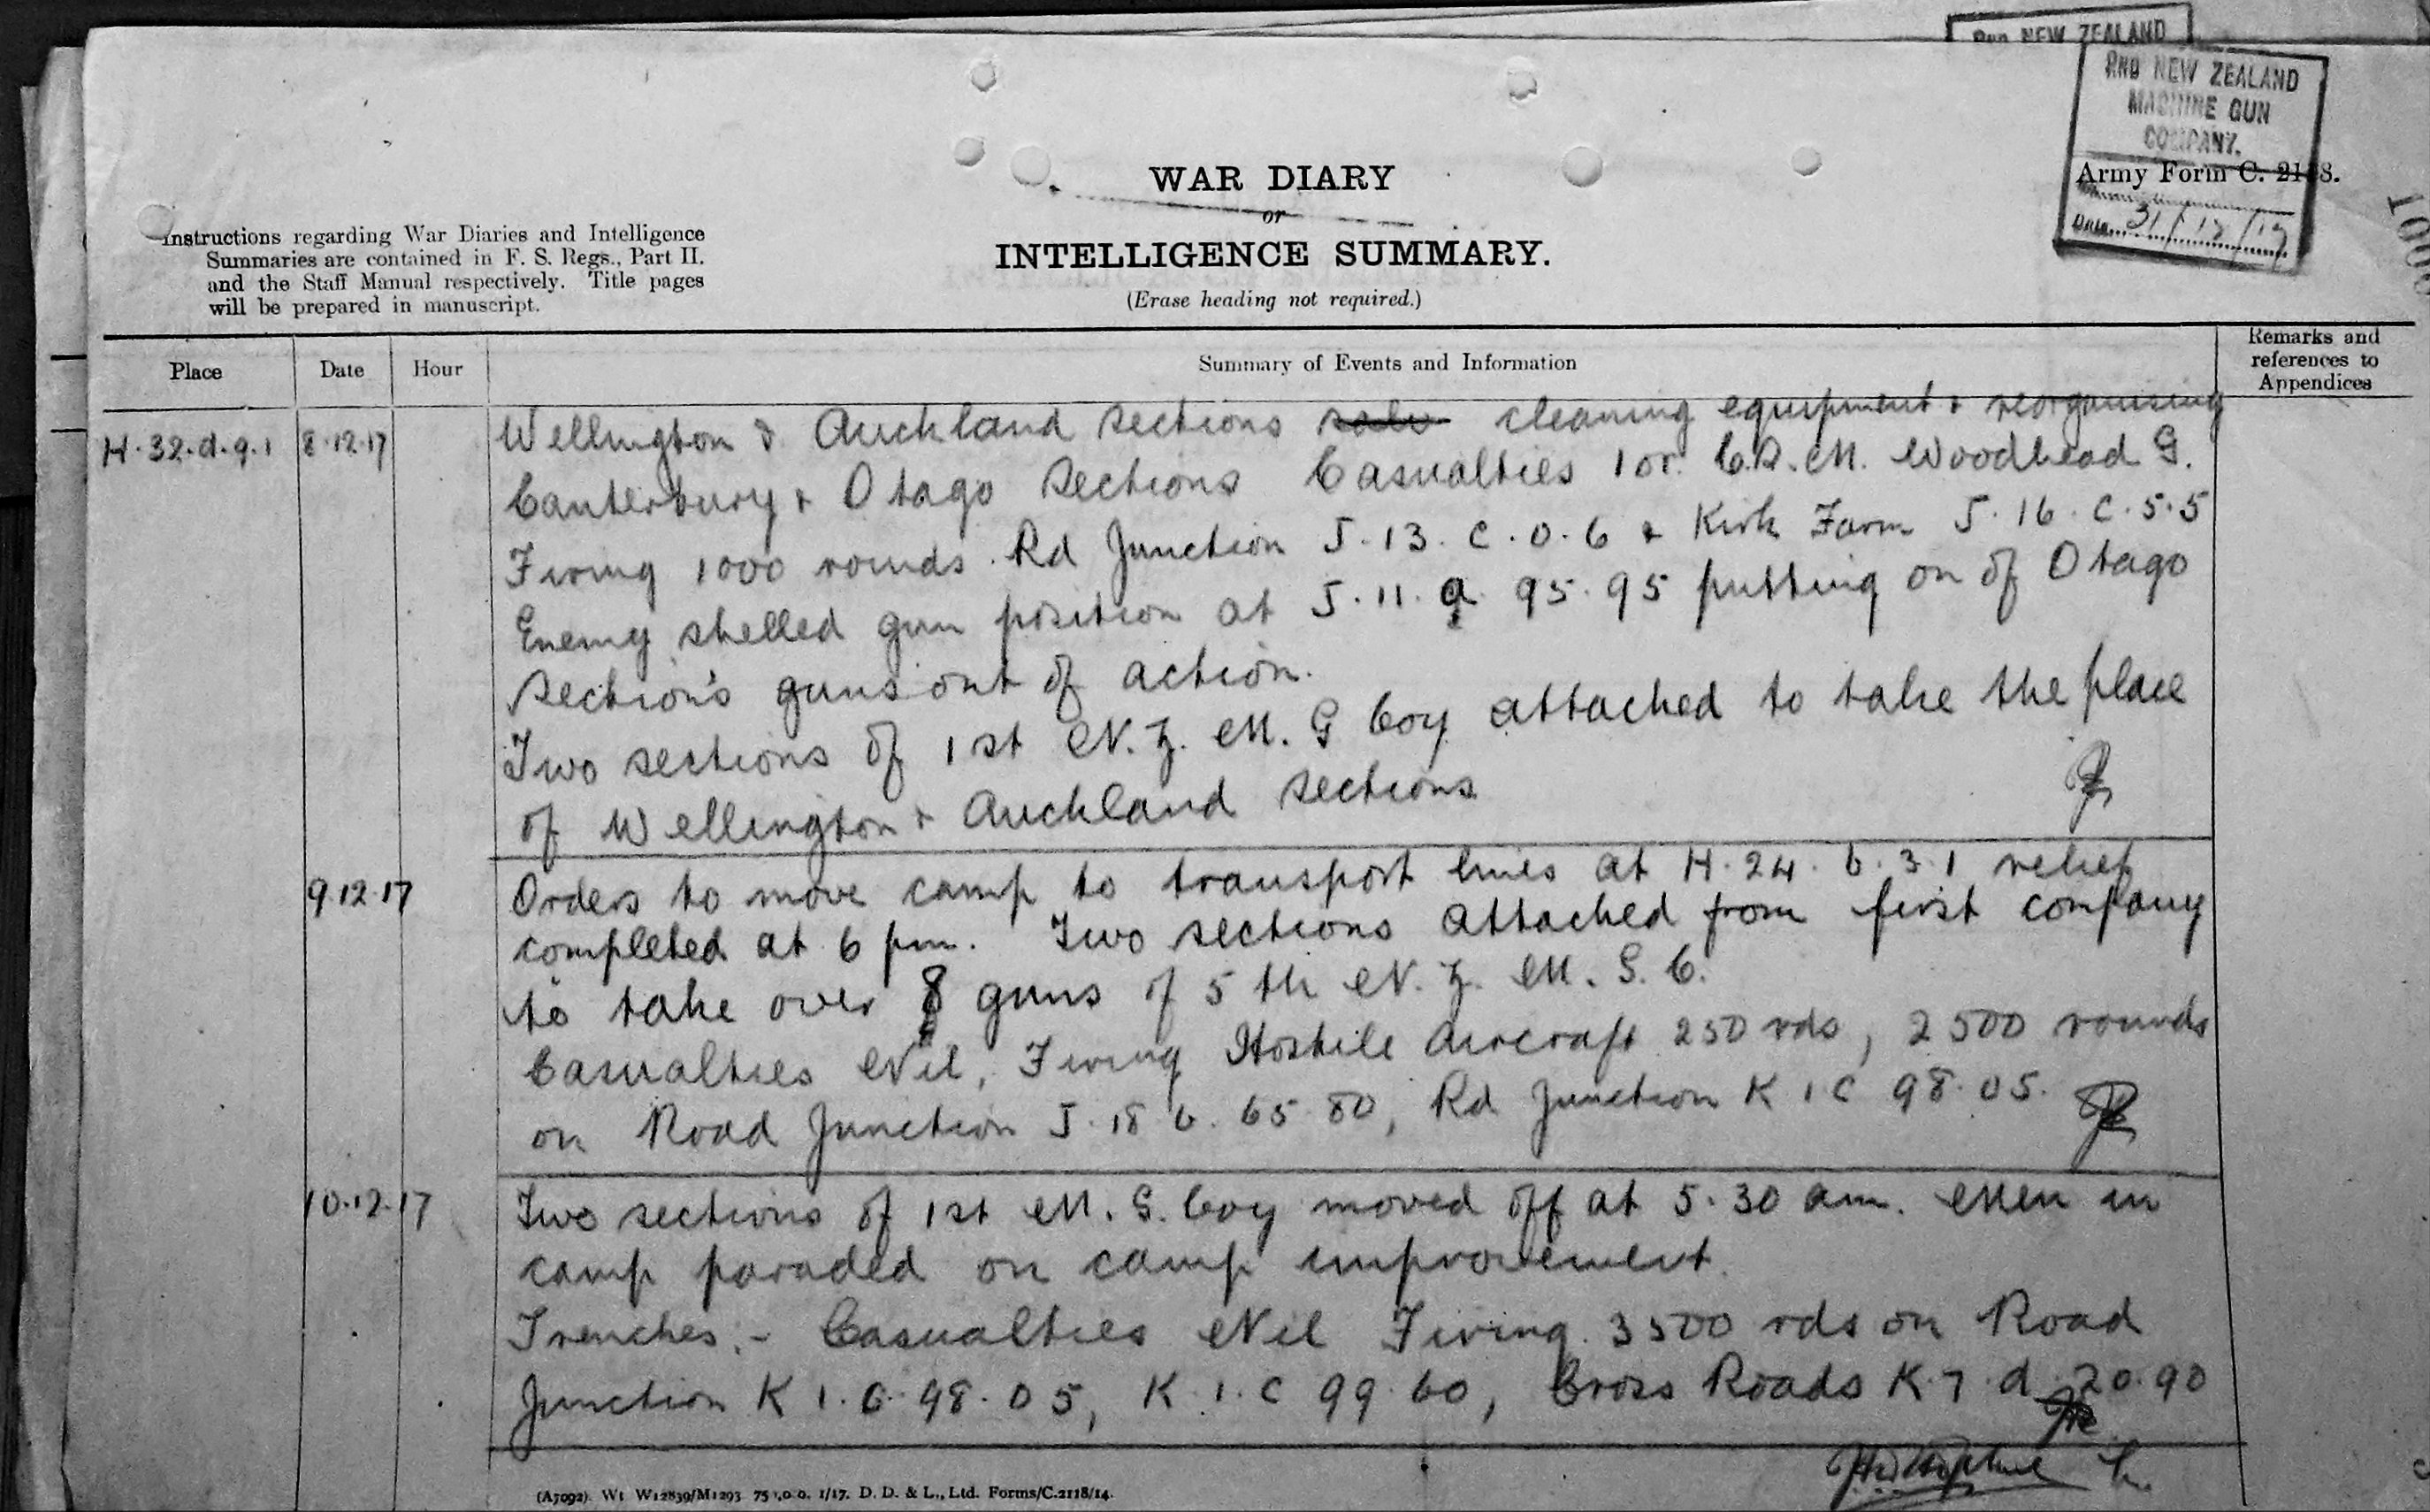 2ND NEW ZEALAND
2ND NEW ZEALAND
MACHINE GUN
COMPANY.
Army Form C. 2118.
Date 31/12/17
WAR DIARY
or
INTELLIGENCE SUMMARY.
(Erase heading not required.)
Instructions regarding War Diaries and Intelligence
Summaries are contained in F. S. Regs., Part II.
and the Staff Manual respectively. Title pages
will be prepared in manuscript.
Place Date Hour Summary of Events and Information Remarks and references to Appendices
H.32.d.9.1 8.12.17 Wellington & Auckland sections cleaning equipment & reorganising
Canterbury & Otago Sections Casualties 1 or. C.S.M. Woodhead G.
Firing 1000 rounds. Rd Junction J.13.c.0.6 & Kirk Farm J.16.c.5.5
Enemy shelled gun position at J.11.a.95.95 putting on of Otago
section's guns out of action.
Two sections of 1st N.Z. M.G Coy attached to take the place
of Wellington & Auckland sections
9.12.17 Orders to move camp to transport lines at H.24.b.3.1 relief
completed at 6 pm. Two sections attached from first company
to take over 8 guns of 5th N.Z. M.G.C.
Casualties Nil, Firing Hostile Aircraft 250 rds, 2500 rounds
on Road Junction J.18 b. 65.80, Rd Junction K 1 C 98.05.
10.12.17 Two sections of 1st M.G. Coy moved off at 5.30 am. Men in
camp paraded on camp improvement.
Trenches:- Casualties Nil Firing. 3500 rds on Road
Junction K 1.C.98.05, K.1.C 99.60, Cross Roads K.7.d.20.90
(A7092). Wt W12839/M1293 75,000. 1/17. D. D. & L., Ltd. Forms/C.2118/14.